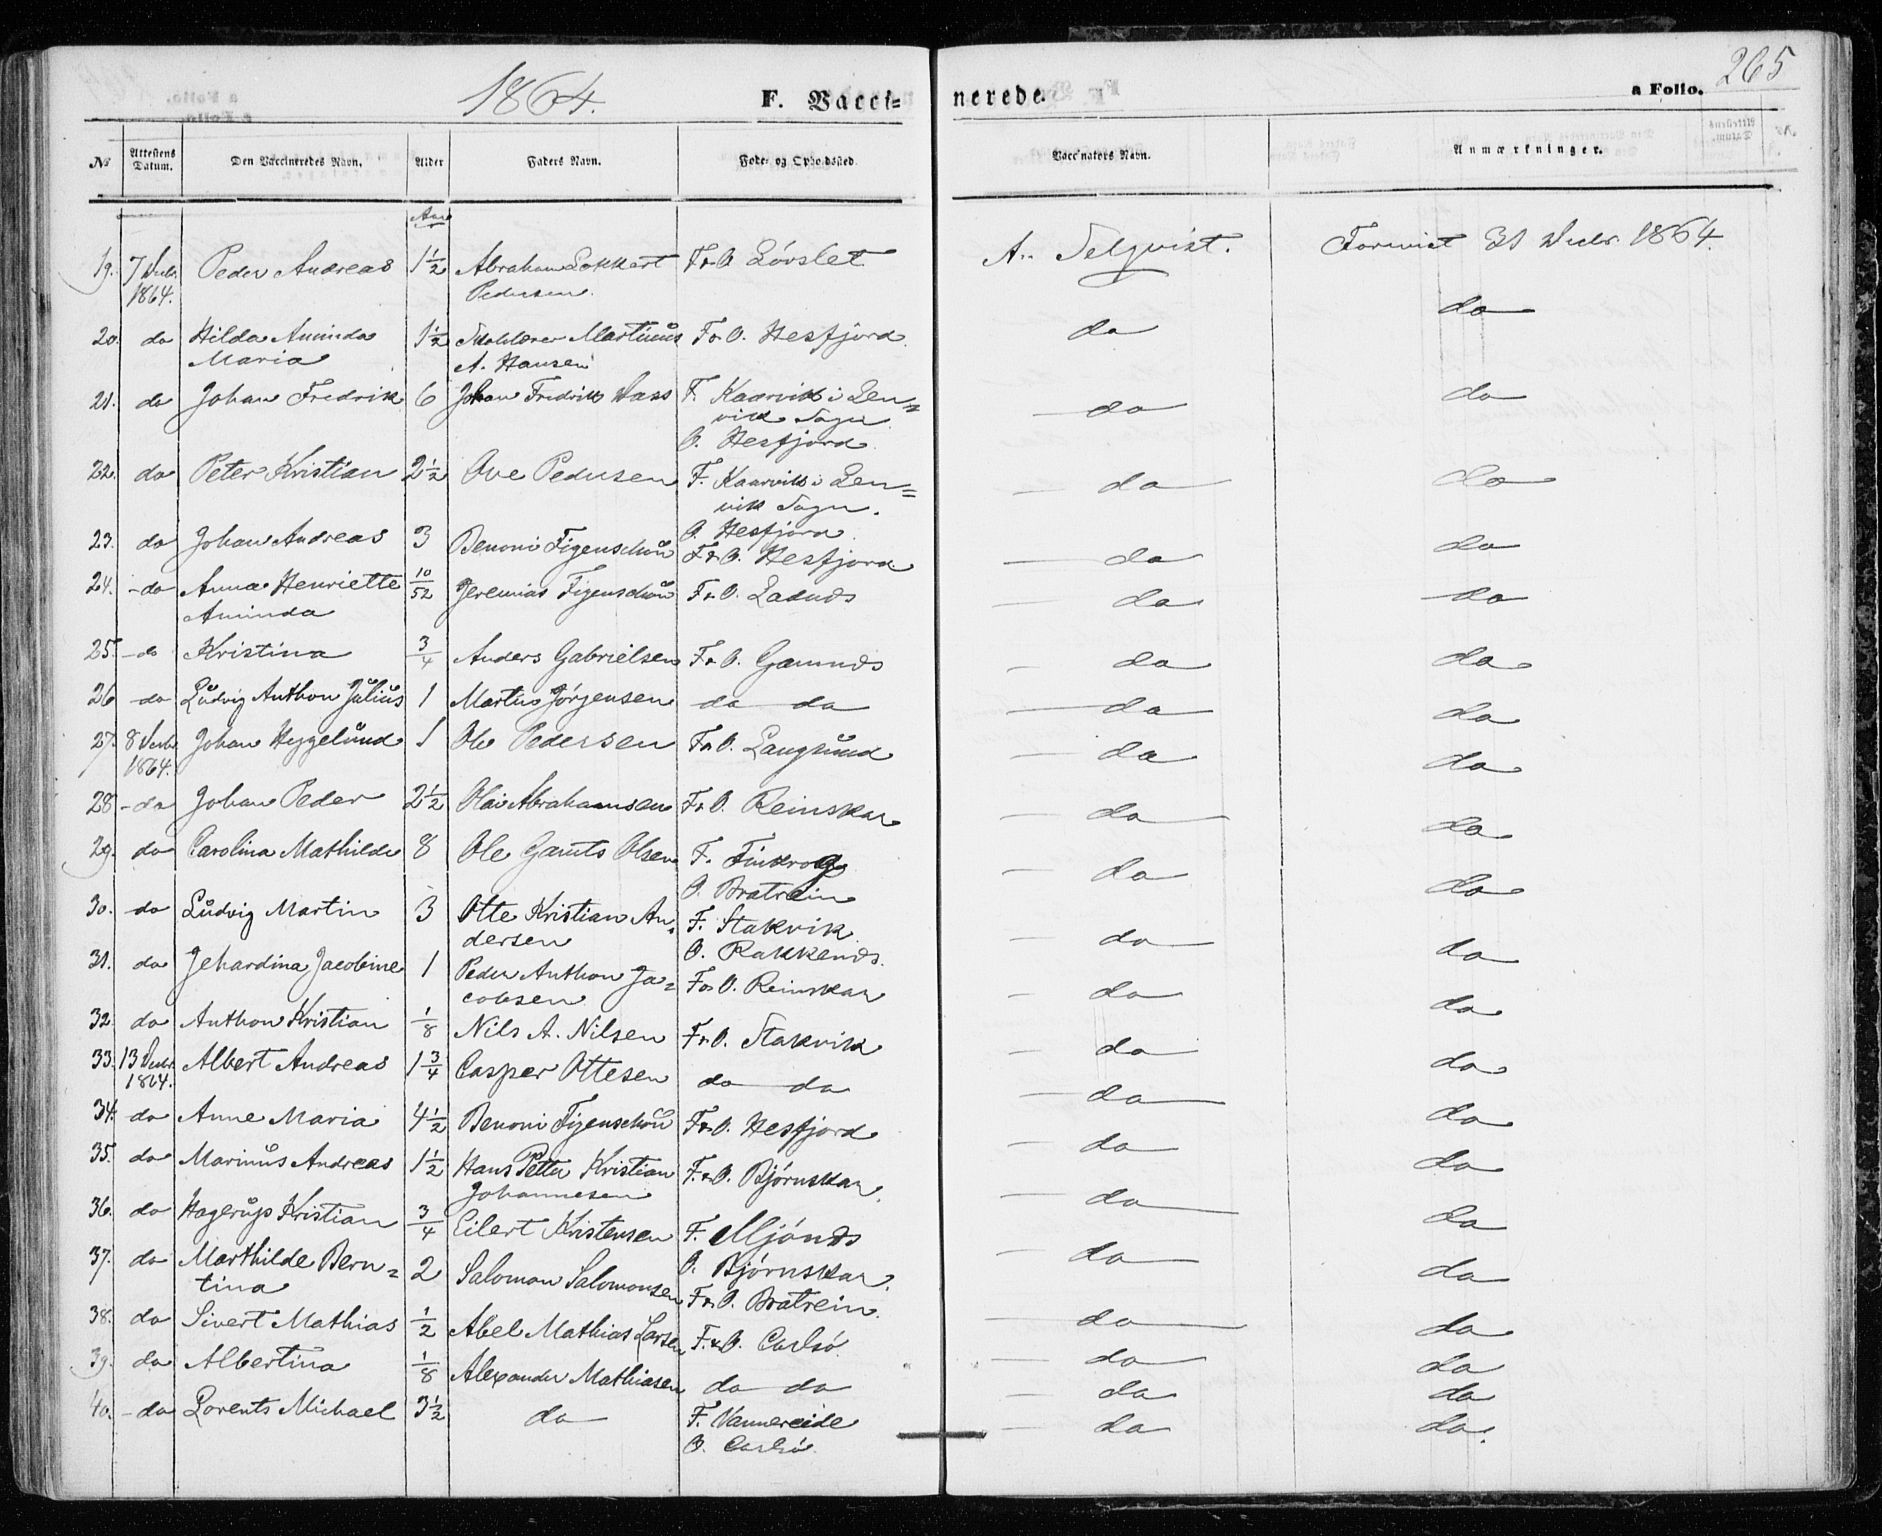 265
1864. F. Vacci= nerede. a Folio.
No Attestens Datum. Den Vaccineredes Navn. Alder Faders Navn. Føde- og Opholdssted. Vaccinators Navn. Anmærkninger.
Aar
19. 7 Decbr 1864. Peder Andreas 1½ Abraham Lokkert Pedersen. F. & O. Lövslet A. Selqvist. Forevist 31 Decbr. 1864.
20. do Hilda Aminda Maria 1½ Skolelærer Martinus A. Hansen F. & O. Hesfjord. do do
21. do Johan Fredrik 6 Johan Fredrik Wass F. Kaarvik i Len=
vik Sogn
O. Hesfjord. do do
22. do Peter Kristian 2½ Ove Pedersen F. Kaarvik i Len=
vik Sogn.
O. Hesfjord. do do
23. do Johan Andreas 3 Benoni Figenschou F. & O. Hesfjord do do
24. do Anna Henriette Aminda 10/52 Jeremias Figenschou F. & O. do do
25. do Kristina 3/4 Anders Gabrielsen F. & O. Gamnæs do do
26 do Ludvig Anthon Julius 1 Martus Jörgensen do do do do
27. 8 Decbr 1864. Johan Heggelund 1 Ole Pedersen F. & O. Langsund do do
28 do Johan Peder 2½ Olai Abrahamsen F. & O. Reinskar do do
29. do Carolina Mathilde 8 Ole Gamts Olsen F. Finkrog
O. Bratrein do do
30. do Ludvig Martin 3 Otte Kristian An=
dersen F. Stakvik
O. Rakkenæs. do do
31. do Jehardina Jacobine 1 Peder Anthon Ja=
cobsen F. & O. Reinskar do do
32. do Anthon Kristian 1/8 Nils A. Nilsen F. & O. Stakvik do do
33. 13 Decbr 1864. Albert Andreas 1¾ Casper Ottesen do do do do
34. do Anne Maria 4½ Benoni Figenschou F. & O. Hesfjord do do
35. do Marinus Andreas 1½ Hans Petter Kristian Johannesen F. & O. Björnskar. do do
36. do Hagerup Kristian 3/4 Eilert Kristensen F. Mjönæs
O. Björnskar. do do
37. do Marthilde Bern=
tina 2 Salomon Salomonsen F. & O. Bratrein. do do
38. do Sivert Mathias 1/2 Abel Mathias Larsen F. & O. Carlsö. do do
39. do Albertina 1/8 Alexander Mathiasen do do do do
40. do Lorents Michael 3½ do F. Vannereide
O. Carlsö. do do.